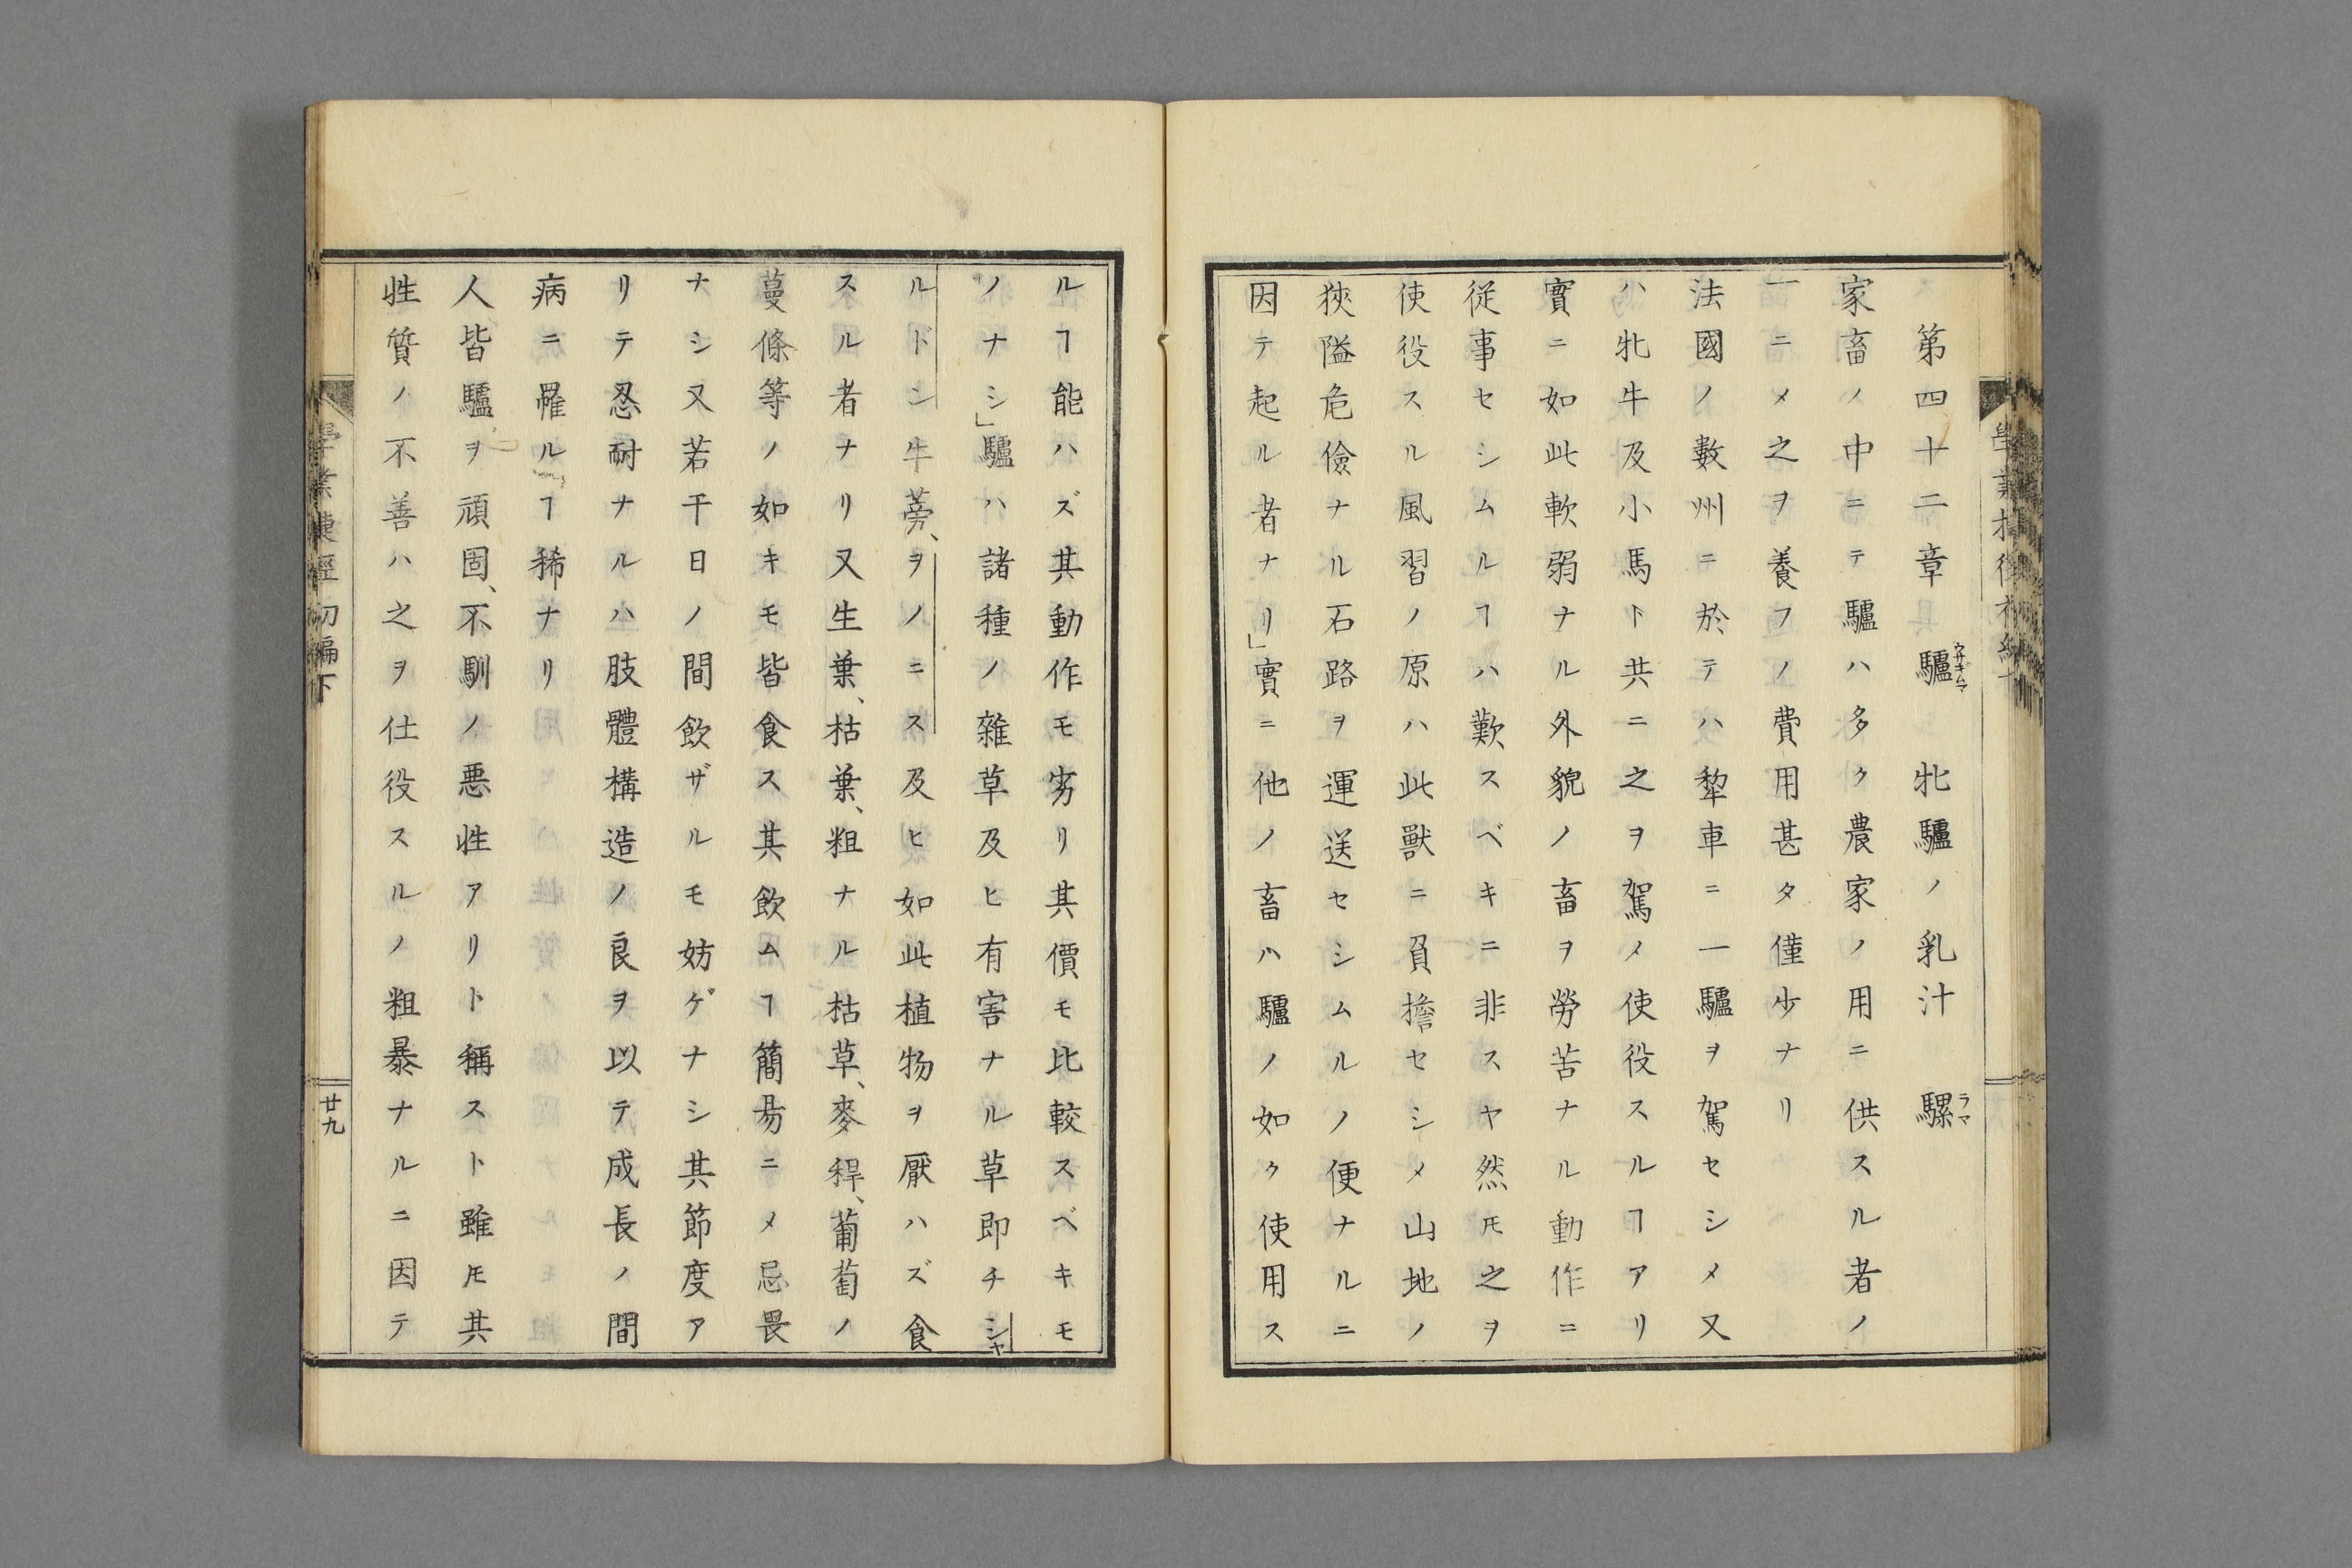 第四十二章 驢 牝驢ノ乳汁 騾
ウサギムマ
ラマ
家畜ノ中ニテ驢ハ多ク農家ノ用ニ供スル者ノ
一ニメ之ヲ養フノ費用甚タ僅少ナリ
法國ノ數州ニ於テハ犂車ニ一驢ヲ駕セシメ又
ハ牝牛及小馬ト共ニ之ヲ駕メ使役スルヿアリ
實ニ如此軟弱ナル外貌ノ畜ヲ勞苦ナル動作ニ
従事セシムルヿハ歎スベキニ非スヤ然𪜈之ヲ
使役スル風習ノ原ハ此獸ニ負擔セシメ山地ノ
狹隘危儉ナル石路ヲ運送セシムルノ便ナルニ
因テ起ル者ナリ」實ニ他ノ畜ハ驢ノ如ク使用ス
ルヿ能ハズ其動作モ劣リ其價モ比較スベキモ
ノナシ」驢ハ諸種ノ雜草及ヒ有害ナル草即チシャ
ルドン牛蒡、ヲノニス及ヒ如此植物ヲ厭ハズ食
スル者ナリ又生葉、枯葉、粗ナル枯草、麥稈、葡萄ノ
蔓條等ノ如キモ皆食ス其飲ムヿ簡易ニメ忌畏
ナシ又若干日ノ間飲ザルモ妨ゲナシ其節度ア
リテ忍耐ナルハ肢體構造ノ良ヲ以テ成長ノ間
病ニ罹ルヿ稀ナリ
人皆驢ヲ頑固、不馴ノ悪性アリト稱スト雖𪜈其
性質ノ不善ハ之ヲ仕役スルノ粗暴ナルニ因テ
初編下
廿九